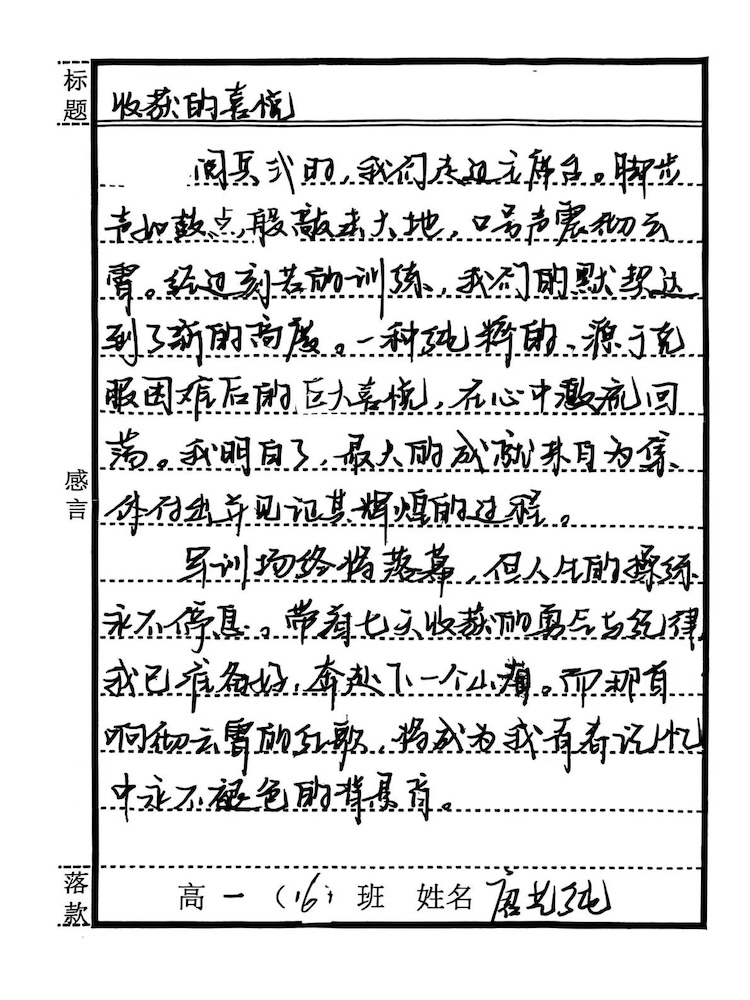 标题
收获的喜悦
阅兵式时,我们走过主席台。脚步
声如鼓点,般敲击大地,口号声震彻云
霄。经过刻苦的训练,我们的默契达
到了新的高度。一种纯粹的、源于克
服困难后的巨大喜悦,在心中激流回
荡。我明白了,最大的成就来自为集
体付出并见证其辉煌的过程。
感言
军训场终将落幕,但人生的操练
永不停息。带着七天收获的勇气与纪律,
我已准备好,奔赴下一个山巅。而那首
响彻云霄的红歌,将成为我青春记忆
中永不褪色的背景音。
落款
高一(16)班 姓名 唐艺纯